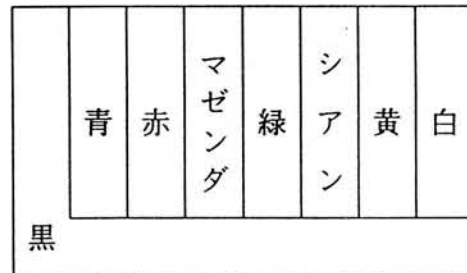 青
赤
マゼンダ
緑
シアン
黄
白
黒